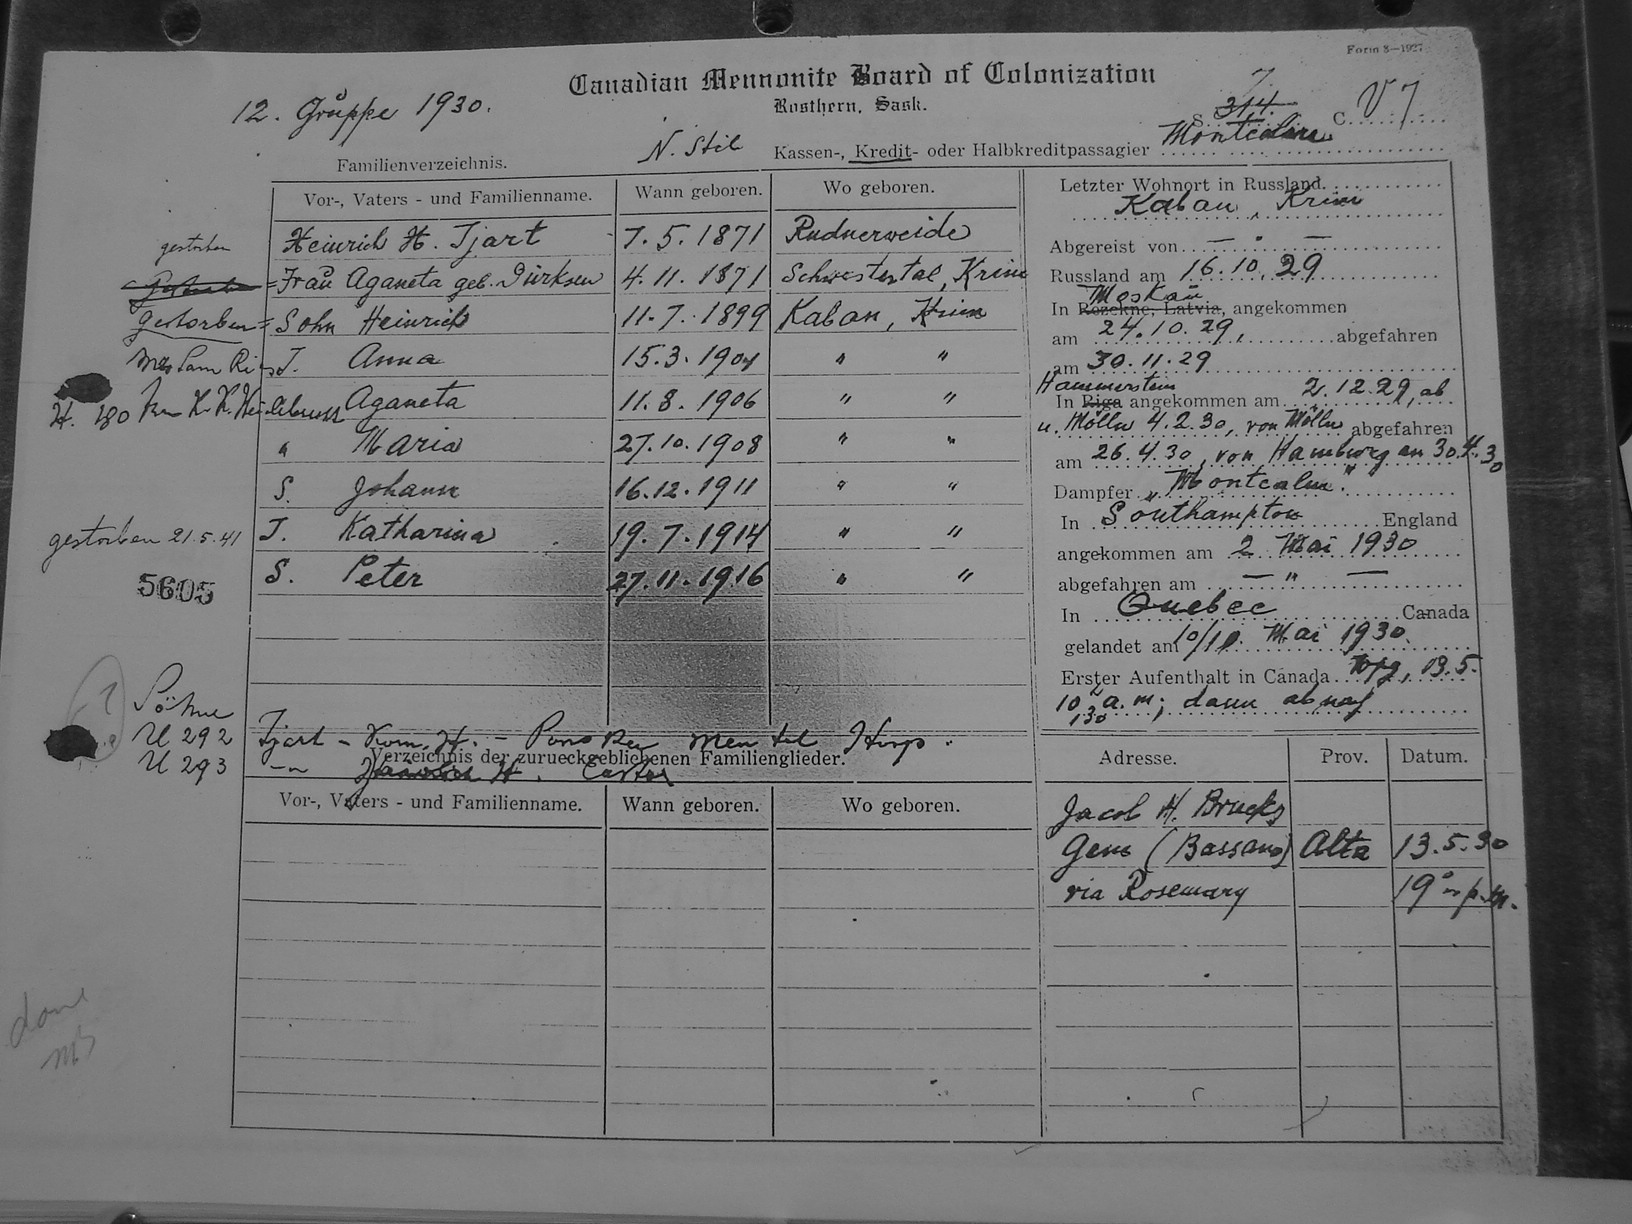 Form 8—1927
Canadian Mennonite Board of Colonization
Rosthern, Sask.
12. Gruppe 1930.
7.
S. 314 C. V 7
N. Stil
Kassen-, Kredit- oder Halbkreditpassagier Montcalm
Familienverzeichnis.
Vor-, Vaters - und Familienname. Wann geboren. Wo geboren.
gestorben Heinrich H. Tjart 7. 5. 1871 Rudnerweide
Frau Aganeta geb. Dürksen 4. 11. 1871 Schwestertal, Krim
gestorben = Sohn Heinrich 11. 7. 1899 Kaban, Krim
Mrs Sam T. Anna 15. 3. 1904 " "
H. 180 K. Aganeta 11. 8. 1906 " "
" Maria 27. 10. 1908 " "
S. Johann 16. 12. 1911 " "
gestorben 21. 5. 41 T. Katharina 19. 7. 1914 " "
5605 S. Peter 27. 11. 1916 " "
Letzter Wohnort in Russland
Kaban, Krim
Abgereist von — " —
Russland am 16. 10. 29
Moskau
In Rozekne, Latvia, angekommen
am 24. 10. 29, abgefahren
am 30. 11. 29
Hammerstein
In Riga angekommen am 2. 12. 29, ab
u. Mölln 4. 2. 30, von Mölln abgefahren
am 26. 4. 30, von Hamburg an 30. 4. 30
Dampfer „Montcalm"
In Southampton England
angekommen am 2 Mai 1930
abgefahren am — " —
In Quebec Canada
gelandet am 10/10. Mai 1930.
Erster Aufenthalt in Canada Wpg, 13. 5.
10 a. m; dann ab nach
130
?
Söhne
U 292 Tjart - Korn. H. - Ponoka Mental Hosp.
U 293 -"- H. Castor
Verzeichnis der zurueckgebliebenen Familienglieder.
Vor-, Vaters - und Familienname. Wann geboren. Wo geboren.
Adresse. Prov. Datum.
Jacob H. Brucks
Gem (Bassano) Alta 13. 5. 30
via Rosemary 19 p. m.
done
MB